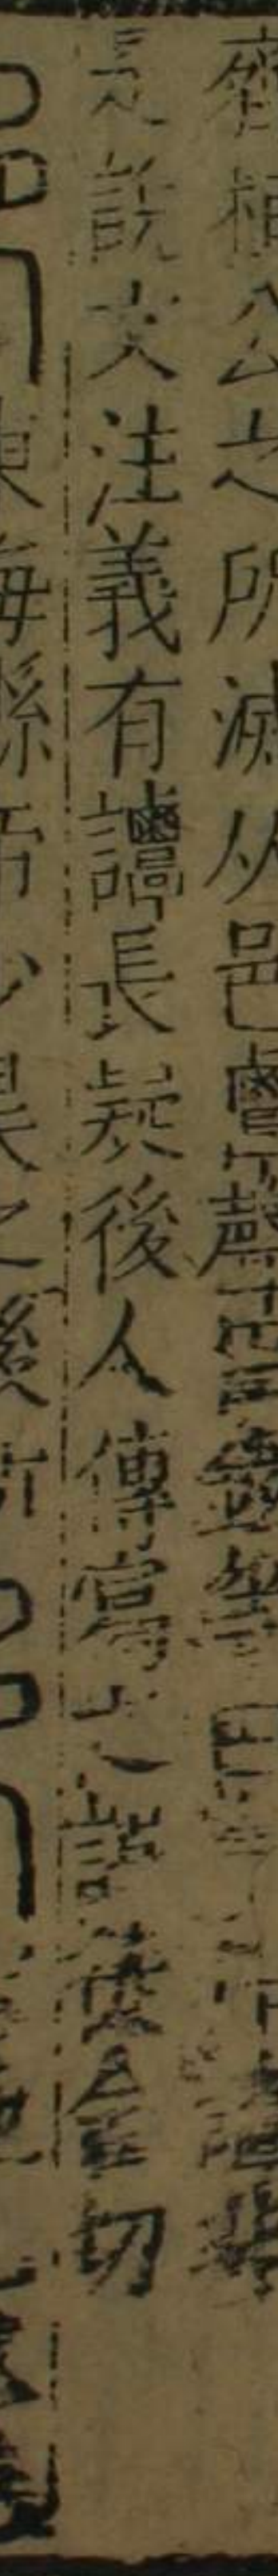 齊桓公之所滅从邑覃聲臣鉉等曰今作譚非
是說文注義有譚長疑後人傳寫之誤徒含切
東海縣帝少昊之後所